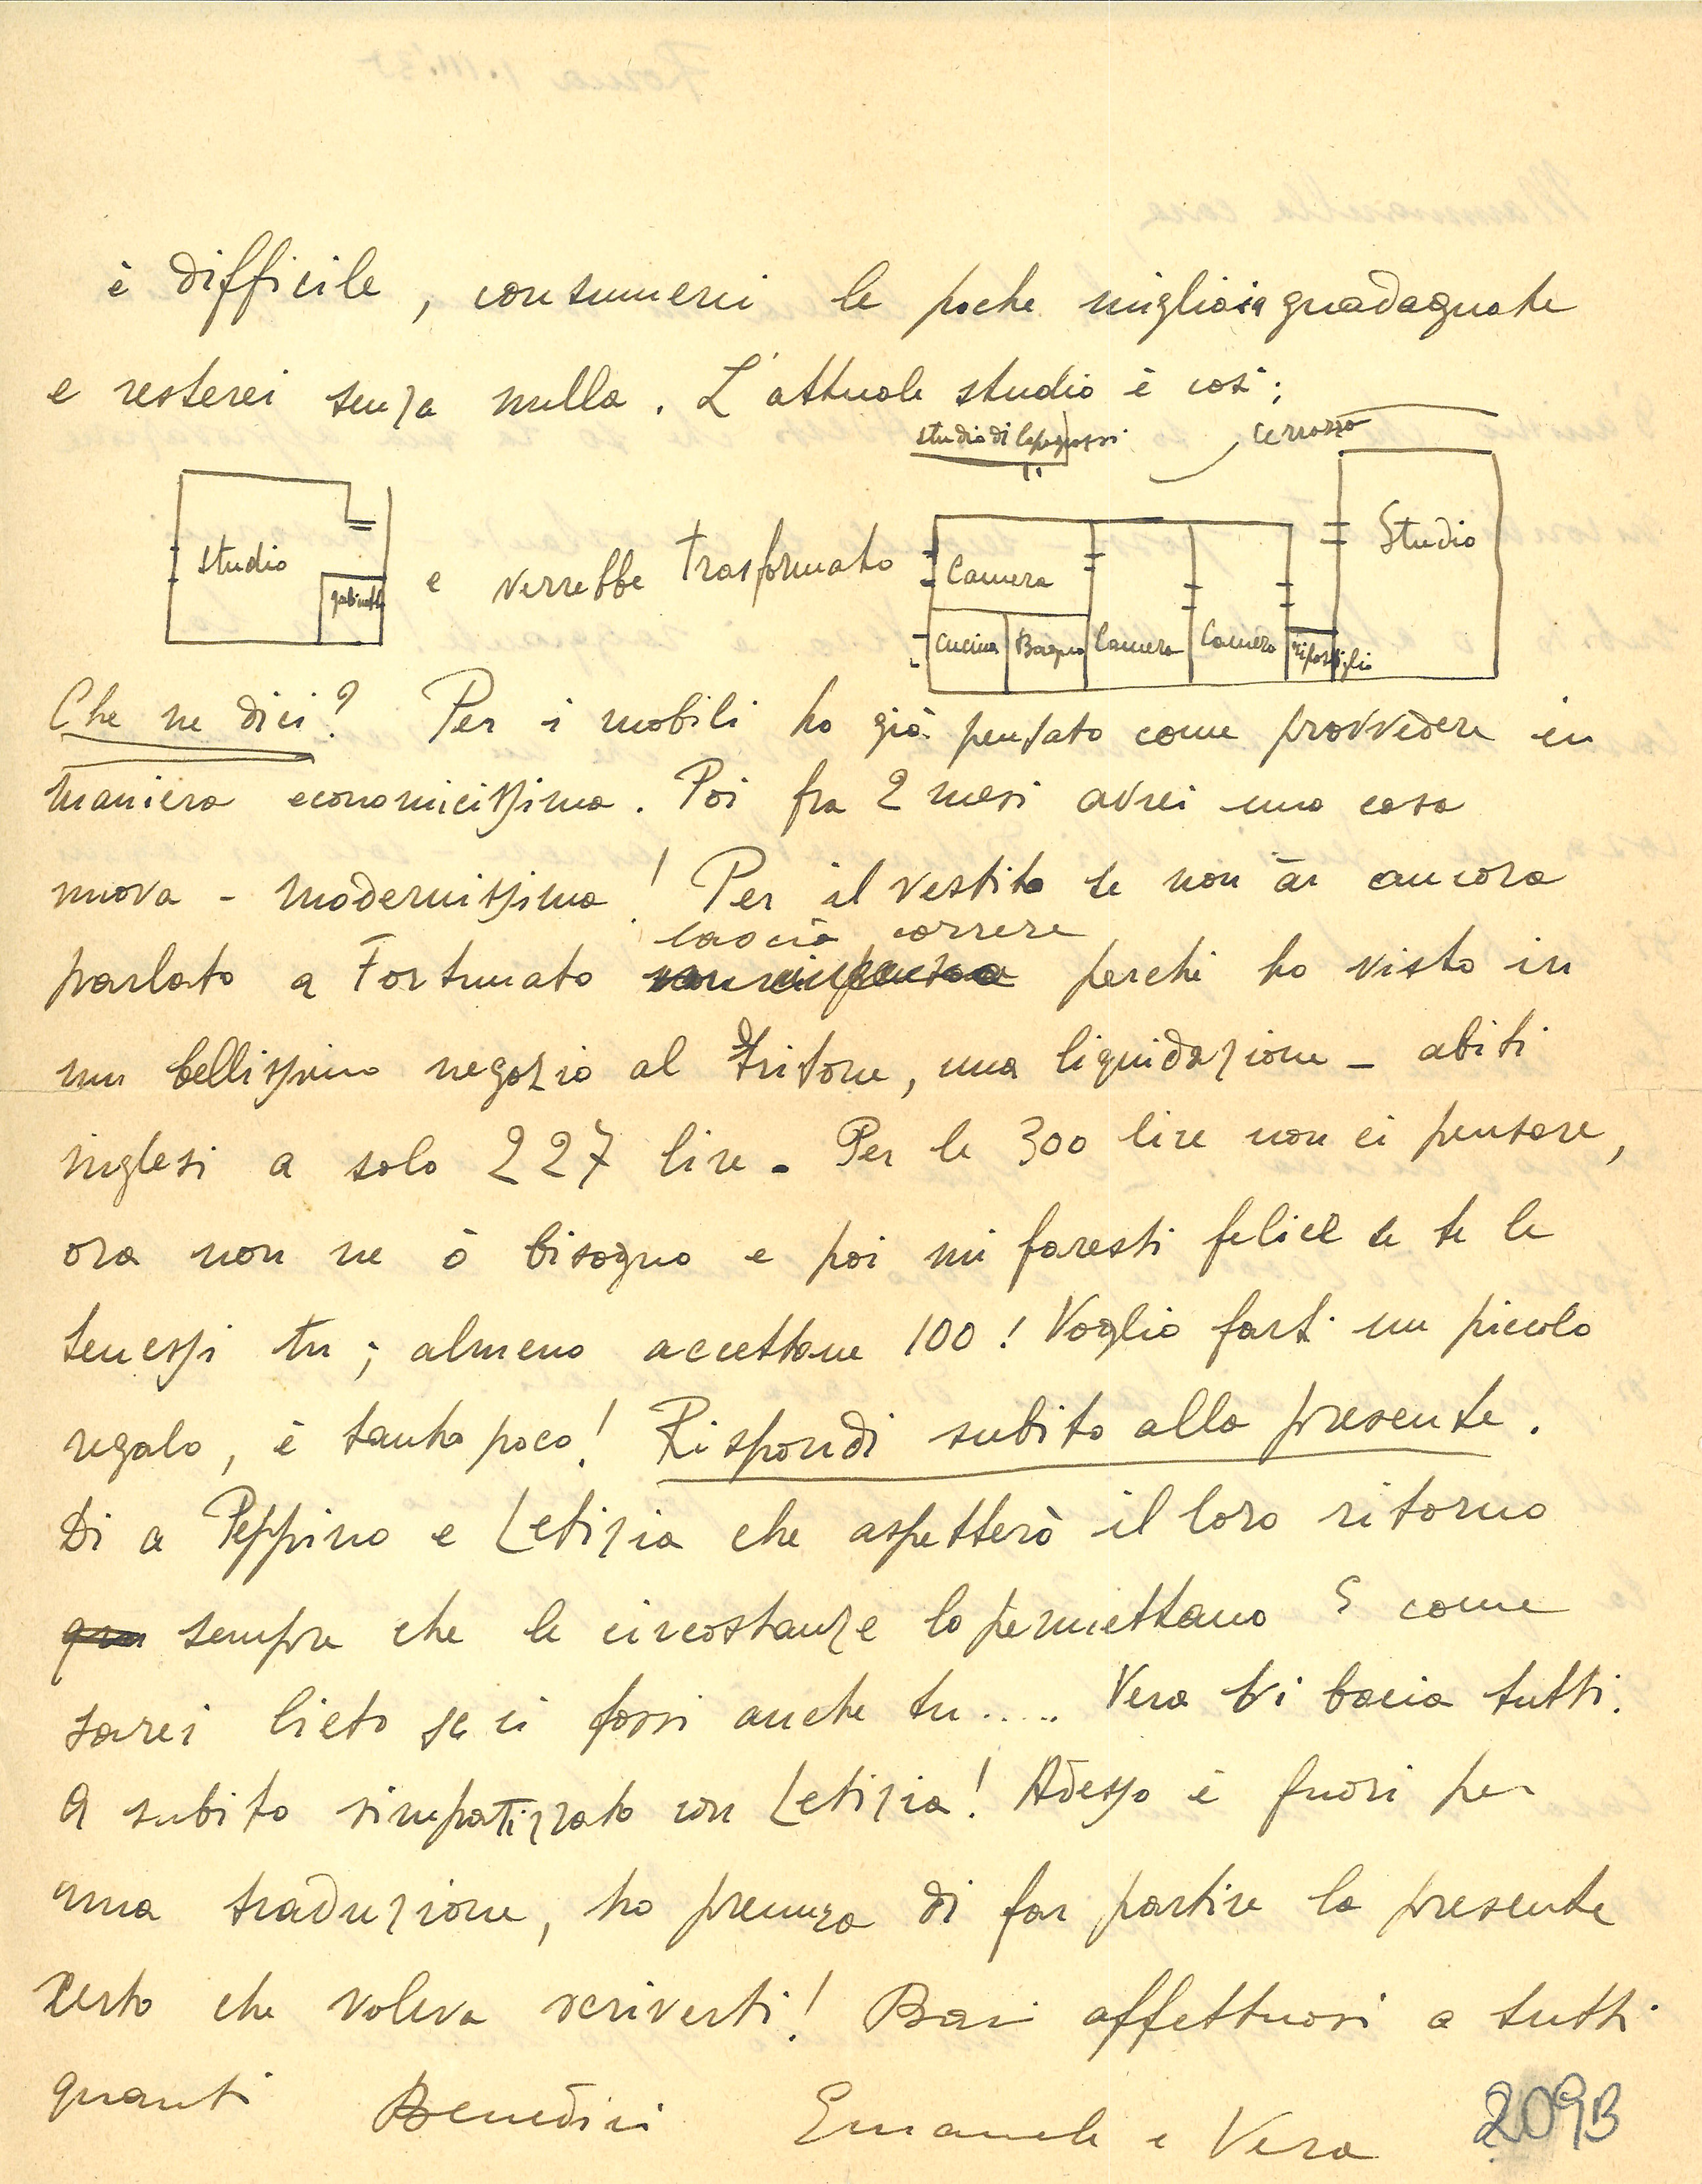 è difficile, consumerei le poche migliaia guadagnate
e resterei senza nulla. L'attuale studio è così:
studio di Capogrossi
terrazzo
studio
gabinetto
e verrebbe trasformato
Camera
Cucina
Bagno
Camera
Camera
ripostiglio
Studio
Che ne dici? Per i mobili ho già pensato come provvedere in
maniera economicissima. Poi fra 2 mesi avrei una casa
nuova - modernissima! Per il vestito se non ài ancora
lascia correre
parlato a Fortunato perchè ho visto in
un bellissimo negozio al Tritone, una liquidazione - abiti
inglesi a solo 227 lire. Per le 300 lire non ci pensare,
ora non ne ò bisogno e poi mi faresti felice se te le
tenessi tu; almeno accettane 100! Voglio farti un piccolo
regalo, è tanto poco! Rispondi subito alla presente.
Di a Peppino e Letizia che aspetterò il loro ritorno
sempre che le circostanze lo permettano E come
sarei lieto se ci fossi anche tu..... Vera vi bacia tutti.
A subito simpatizzato con Letizia! Adesso è fuori per
una traduzione, ho premura di far partire la presente
certo che voleva scriverti! Baci affettuosi a tutti
quanti Benedici Emanuele e Vera
209B